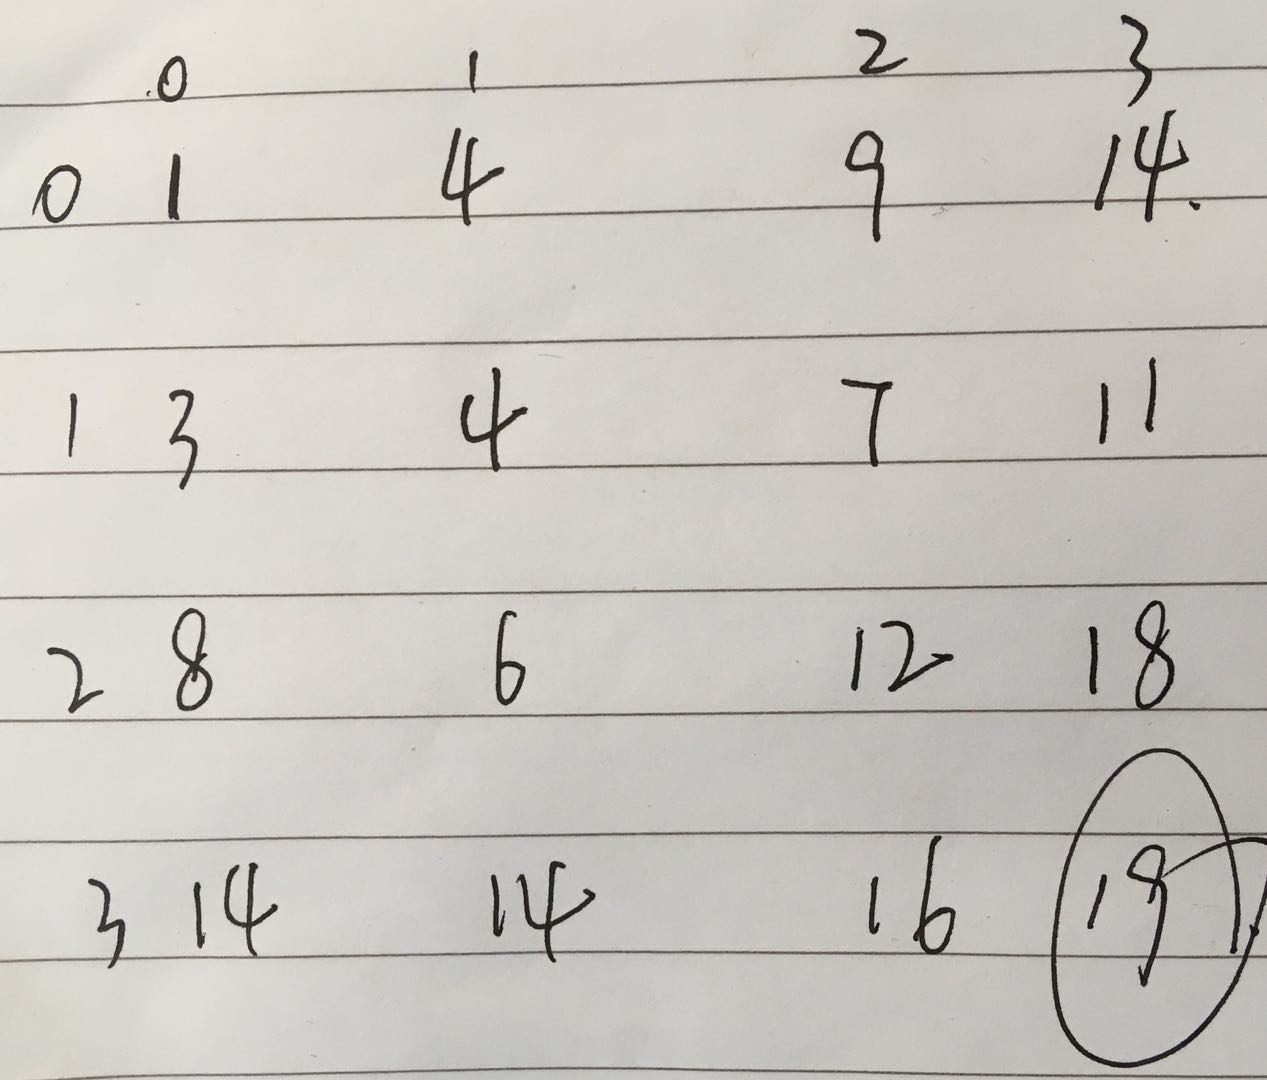 0 1 2 3
0 1 4 9 14.
1 3 4 7 11
2 8 6 12 18
3 14 14 16 19